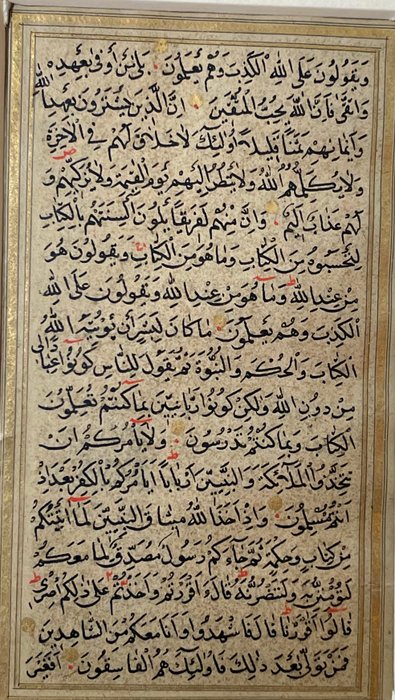 وَيَقُولُونَ عَلَى اللهِ الْكَذِبَ وَهُمْ يَعْلَمُونَ بَلَى مَنْ أَوْفَى بِعَهْدِهِ
وَاتَّقَى فَإِنَّ اللهَ يُحِبُّ الْمُتَّقِينَ إِنَّ الَّذِينَ يَشْتَرُونَ بِعَهْدِ اللهِ
وَأَيْمَانِهِمْ ثَمَنًا قَلِيلًا أُولَئِكَ لَا خَلَاقَ لَهُمْ فِي الْآخِرَةِ
وَلَا يُكَلِّمُهُمُ اللهُ وَلَا يَنْظُرُ إِلَيْهِمْ يَوْمَ الْقِيمَةِ وَلَا يُزَكِّيهِمْ وَ
لَهُمْ عَذَابٌ أَلِيمٌ وَإِنَّ مِنْهُمْ لَفَرِيقًا يَلْوُنَ أَلْسِنَتَهُمْ بِالْكِتَابِ
لِتَحْسَبُوهُ مِنَ الْكِتَابِ وَمَا هُوَ مِنَ الْكِتَابِ وَيَقُولُونَ هُوَ
مِنْ عِنْدِ اللهِ وَمَا هُوَ مِنْ عِنْدِ اللهِ وَيَقُولُونَ عَلَى اللهِ
الْكَذِبَ وَهُمْ يَعْلَمُونَ مَا كَانَ لِبَشَرٍ أَنْ يُؤْتِيَهُ اللهُ
الْكِتَابَ وَالْحُكْمَ وَالنُّبُوَّةَ ثُمَّ يَقُولَ لِلنَّاسِ كُونُوا عِبَادًا لِي
مِنْ دُونِ اللهِ وَلَكِنْ كُونُوا رَبَّانِيِّينَ بِمَا كُنْتُمْ تُعَلِّمُونَ
الْكِتَابَ وَبِمَا كُنْتُمْ تَدْرُسُونَ وَلَا يَأْمُرَكُمْ أَنْ
تَتَّخِذُوا الْمَلَائِكَةَ وَالنَّبِيِّينَ أَرْبَابًا أَيَأْمُرُكُمْ بِالْكُفْرِ بَعْدَ إِذْ
أَنْتُمْ مُسْلِمُونَ وَإِذْ أَخَذَ اللهُ مِيثَاقَ النَّبِيِّينَ لَمَا آتَيْتُكُمْ
مِنْ كِتَابٍ وَحِكْمَةٍ ثُمَّ جَاءَكُمْ رَسُولٌ مُصَدِّقٌ لِمَا مَعَكُمْ
لَتُؤْمِنُنَّ بِهِ وَلَتَنْصُرُنَّهُ قَالَ ءَأَقْرَرْتُمْ وَأَخَذْتُمْ عَلَى ذَلِكُمْ إِصْرِي
قَالُوا أَقْرَرْنَا قَالَ فَاشْهَدُوا وَأَنَا مَعَكُمْ مِنَ الشَّاهِدِينَ
فَمَنْ تَوَلَّى بَعْدَ ذَلِكَ فَأُولَئِكَ هُمُ الْفَاسِقُونَ أَفَغَيْرَ